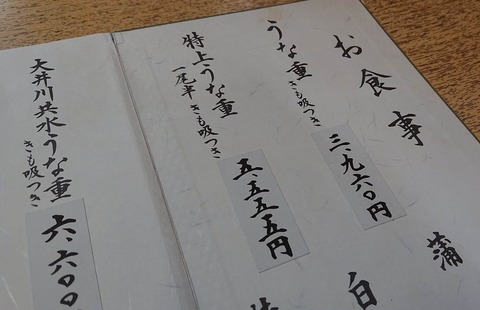 お食事
うな重
きも吸つき
三、九六〇円
特上うな重
一尾半 きも吸つき
五、五五五円
大井川共水うな重
きも吸つき
六、六〇〇
蒲
白